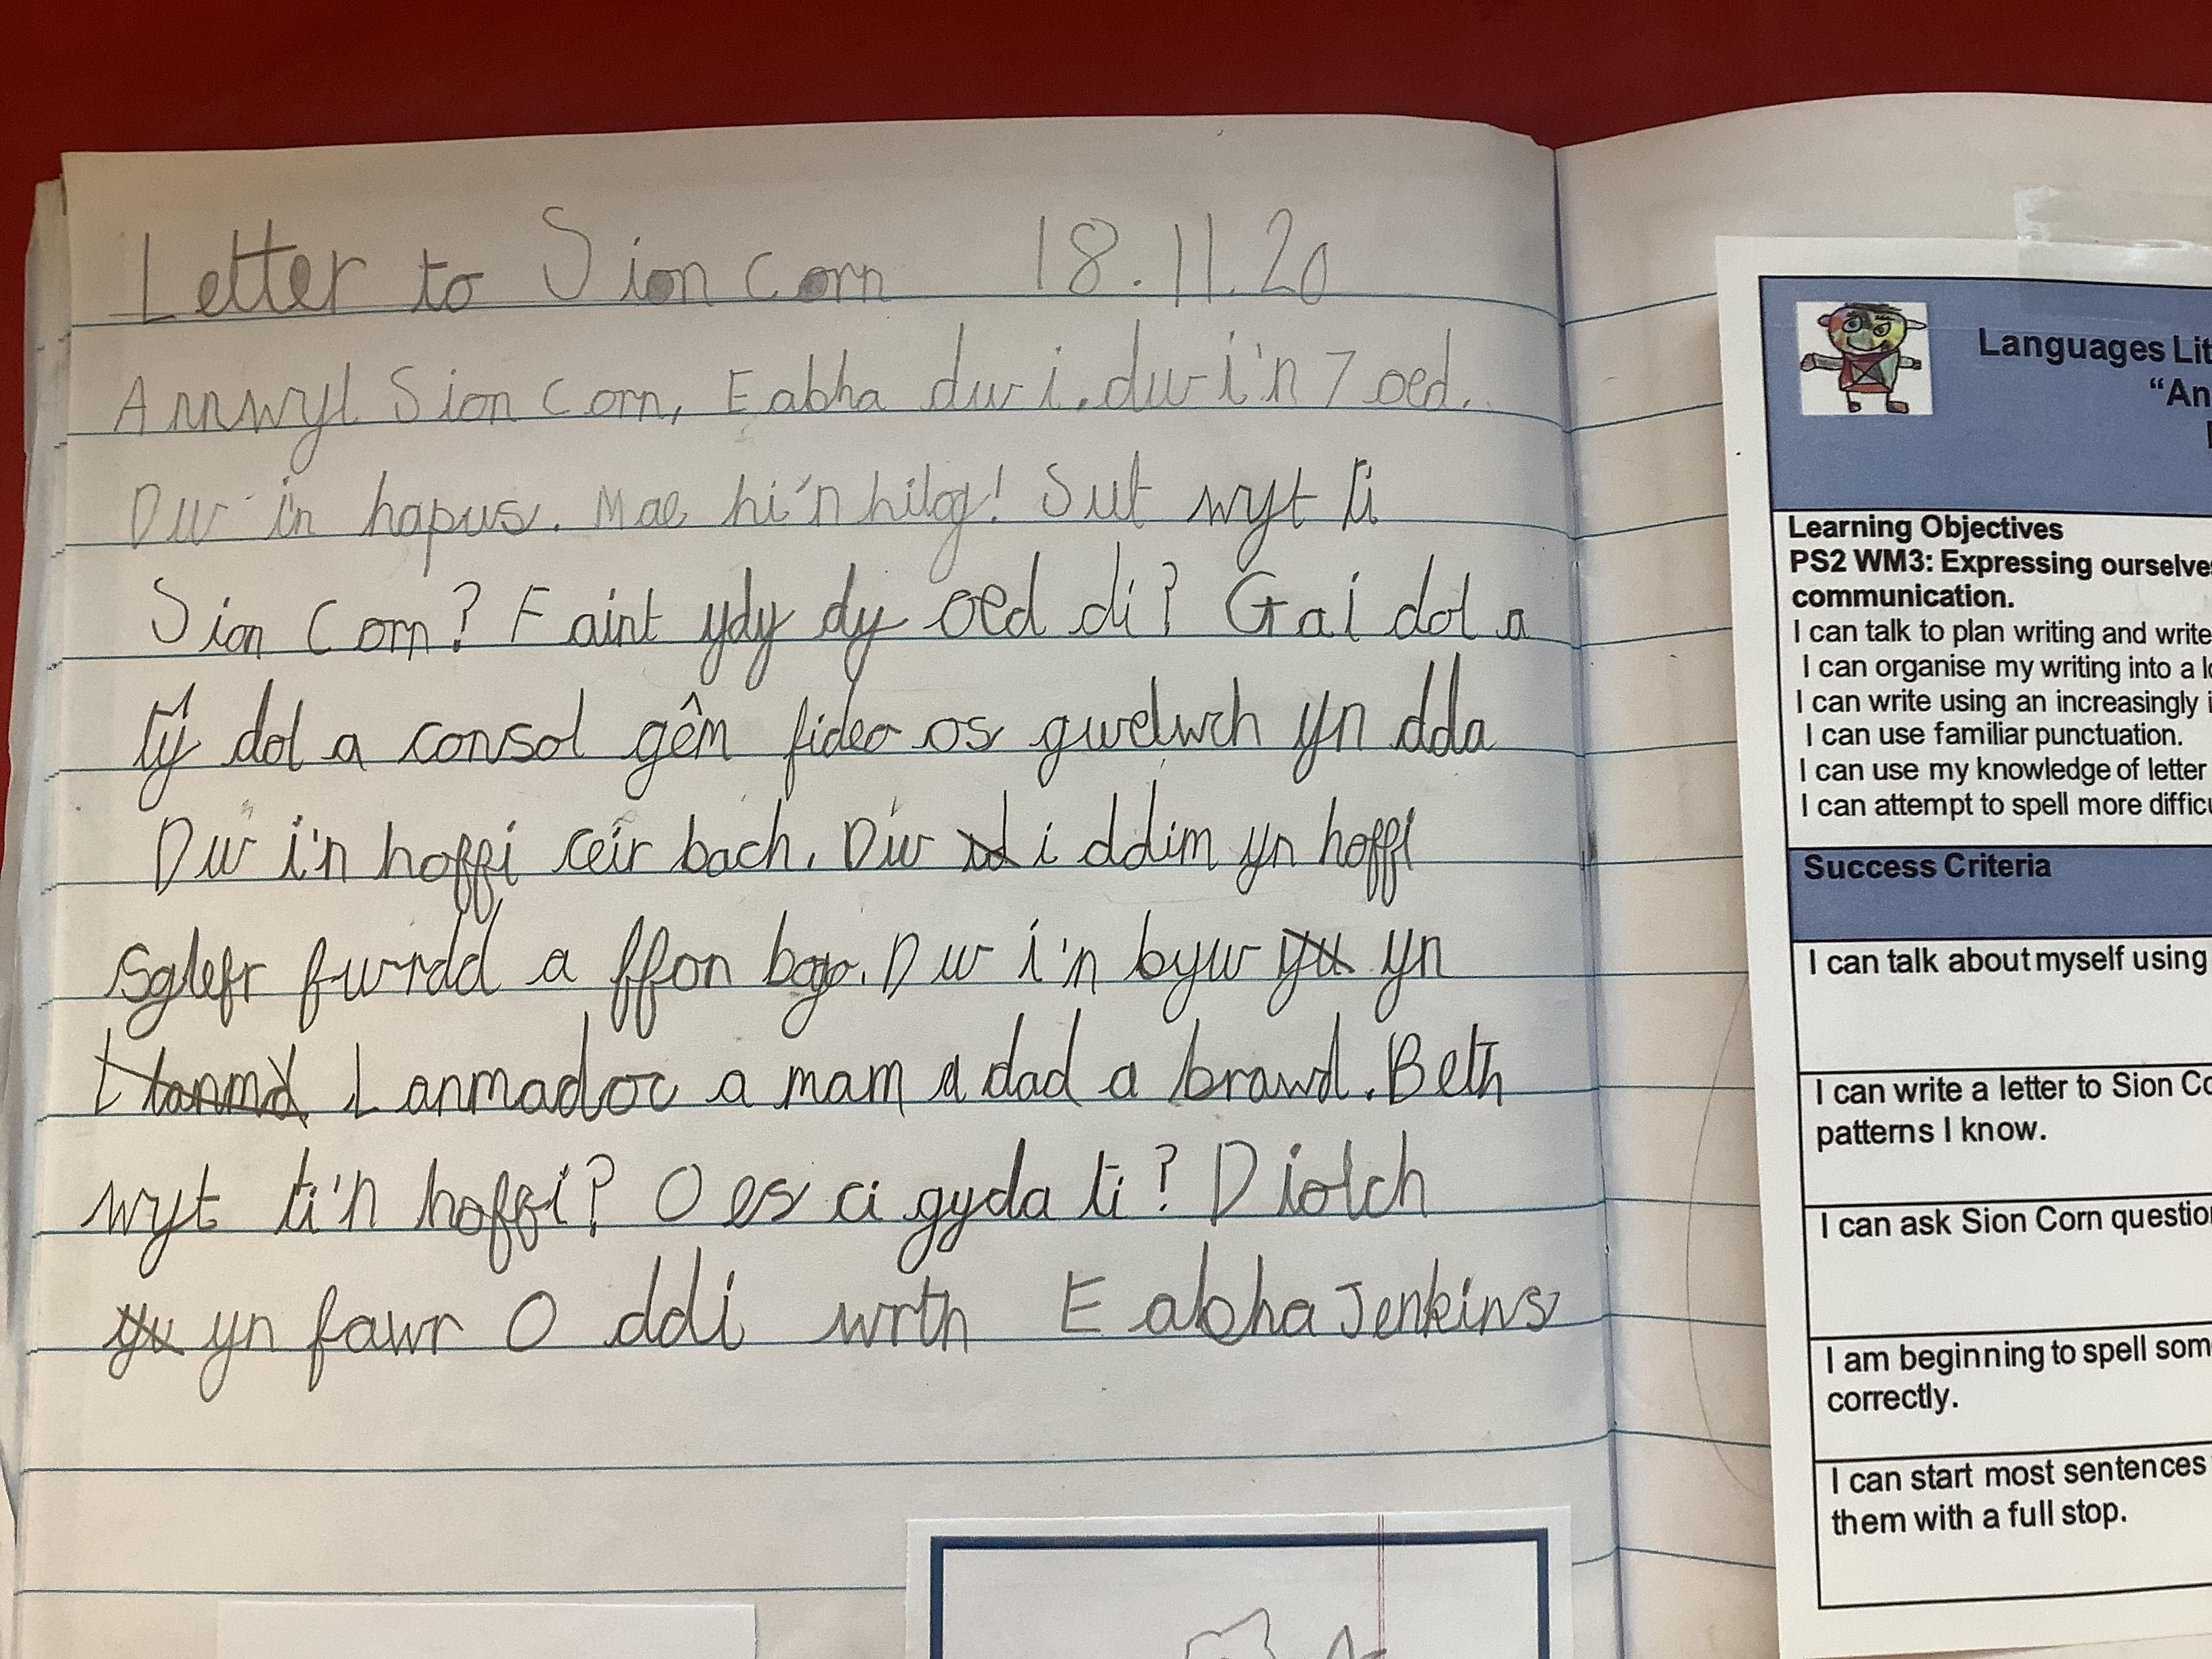 Letter to Sion Corn 18.11.20
Annwyl Sion Corn, Eabha dw i. dw i'n 7 oed.
Dw i'n hapus. Mae hi'n hilog! Sut wyt ti
Sion Corn? Faint ydy dy oed di? Gai dol a
tŷ dol a consol gêm fideo os gwelwch yn dda
Dw i'n hoffi ceir bach. Dw i ddim yn hoffi
sglefr fwrdd a ffon bogo. Dw i'n byw yn
Lanmadoc a mam a dad a brawd. Beth
wyt ti'n hoffi? Oes ci gyda ti? Diolch
yn fawr O ddi wrth Eabha Jenkins
Languages Lit
"An
Learning Objectives
PS2 WM3: Expressing ourselves
communication.
I can talk to plan writing and write
I can organise my writing into a lo
I can write using an increasingly i
I can use familiar punctuation.
I can use my knowledge of letter
I can attempt to spell more difficu
Success Criteria
I can talk about myself using
I can write a letter to Sion Co
patterns I know.
I can ask Sion Corn question
I am beginning to spell som
correctly.
I can start most sentences
them with a full stop.